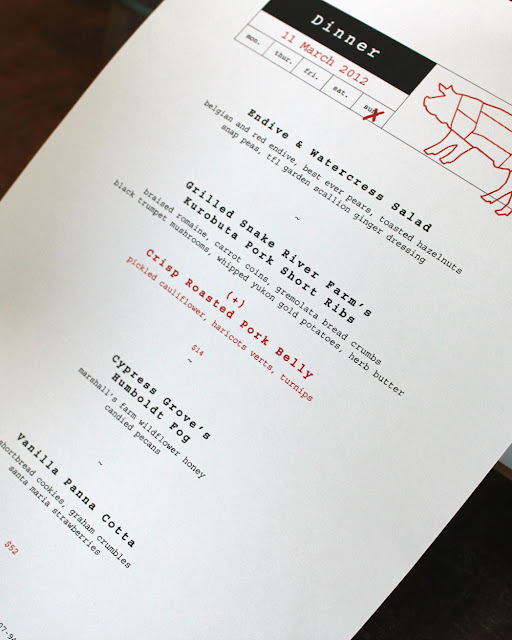 Dinner
11 March 2012
mon. thur. fri. sat. sun.
Endive & Watercress Salad
belgian and red endive, best ever pears, toasted hazelnuts
snap peas, tfl garden scallion ginger dressing
~
Grilled Snake River Farm's
Kurobuta Pork Short Ribs
braised romaine, carrot coins, gremolata bread crumbs
black trumpet mushrooms, whipped yukon gold potatoes, herb butter
(+)
Crisp Roasted Pork Belly
pickled cauliflower, haricots verts, turnips
$14
~
Cypress Grove's
Humboldt Fog
marshall's farm wildflower honey
candied pecans
~
Vanilla Panna Cotta
shortbread cookies, graham crumbles
santa maria strawberries
$52